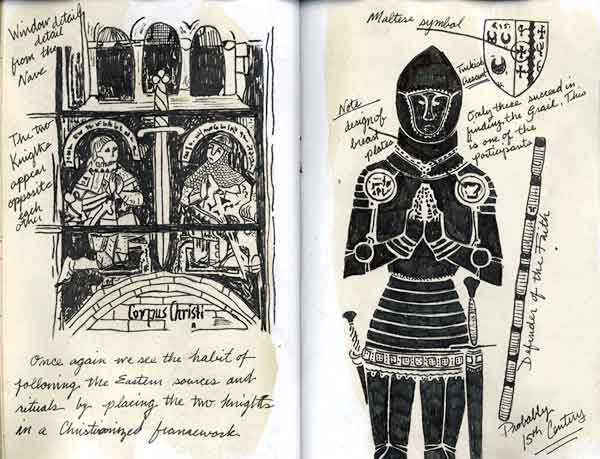 Window detail
detail
from the
Nave
The two
Knights
appear
opposite
each
other
Corpus Christi
Once again we see the habit of
following the Eastern sources and
rituals by placing the two knights
in a Christianized framework
Maltese symbol
Turkish
Crescent
Note
design of
bread
plates
Only three succeed in
finding the Grail. This
is one of the
participants
Defender of the Faith
Probably
15th Century